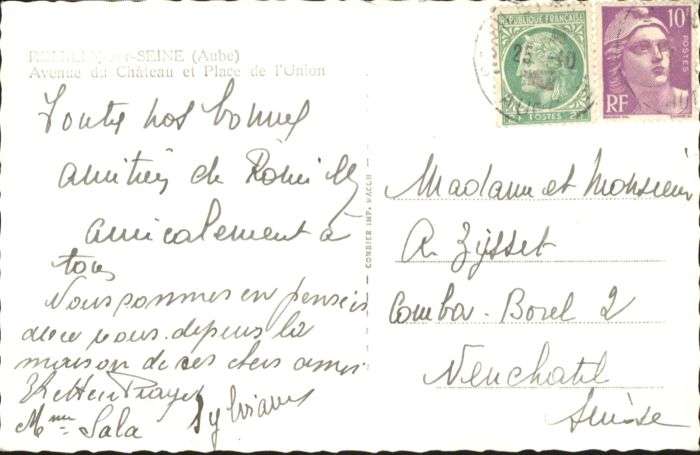 ROMILLY-sur-SEINE (Aube)
Avenue du Château et Place de l'Union
Toutes nos bonnes
amitiés de Romilly
amicalement à
tous
Nous sommes en pensées
avec vous depuis la
maison de ces chers amis
Sylviane
Mme Sala
COMBIER IMP. MACON
RÉPUBLIQUE FRANÇAISE
POSTES 2F
10F
POSTES
RF
23 -10
AUBE
Madame et Monsieur
A. Zysset
Comba-Borel 2
Neuchatel
Suisse